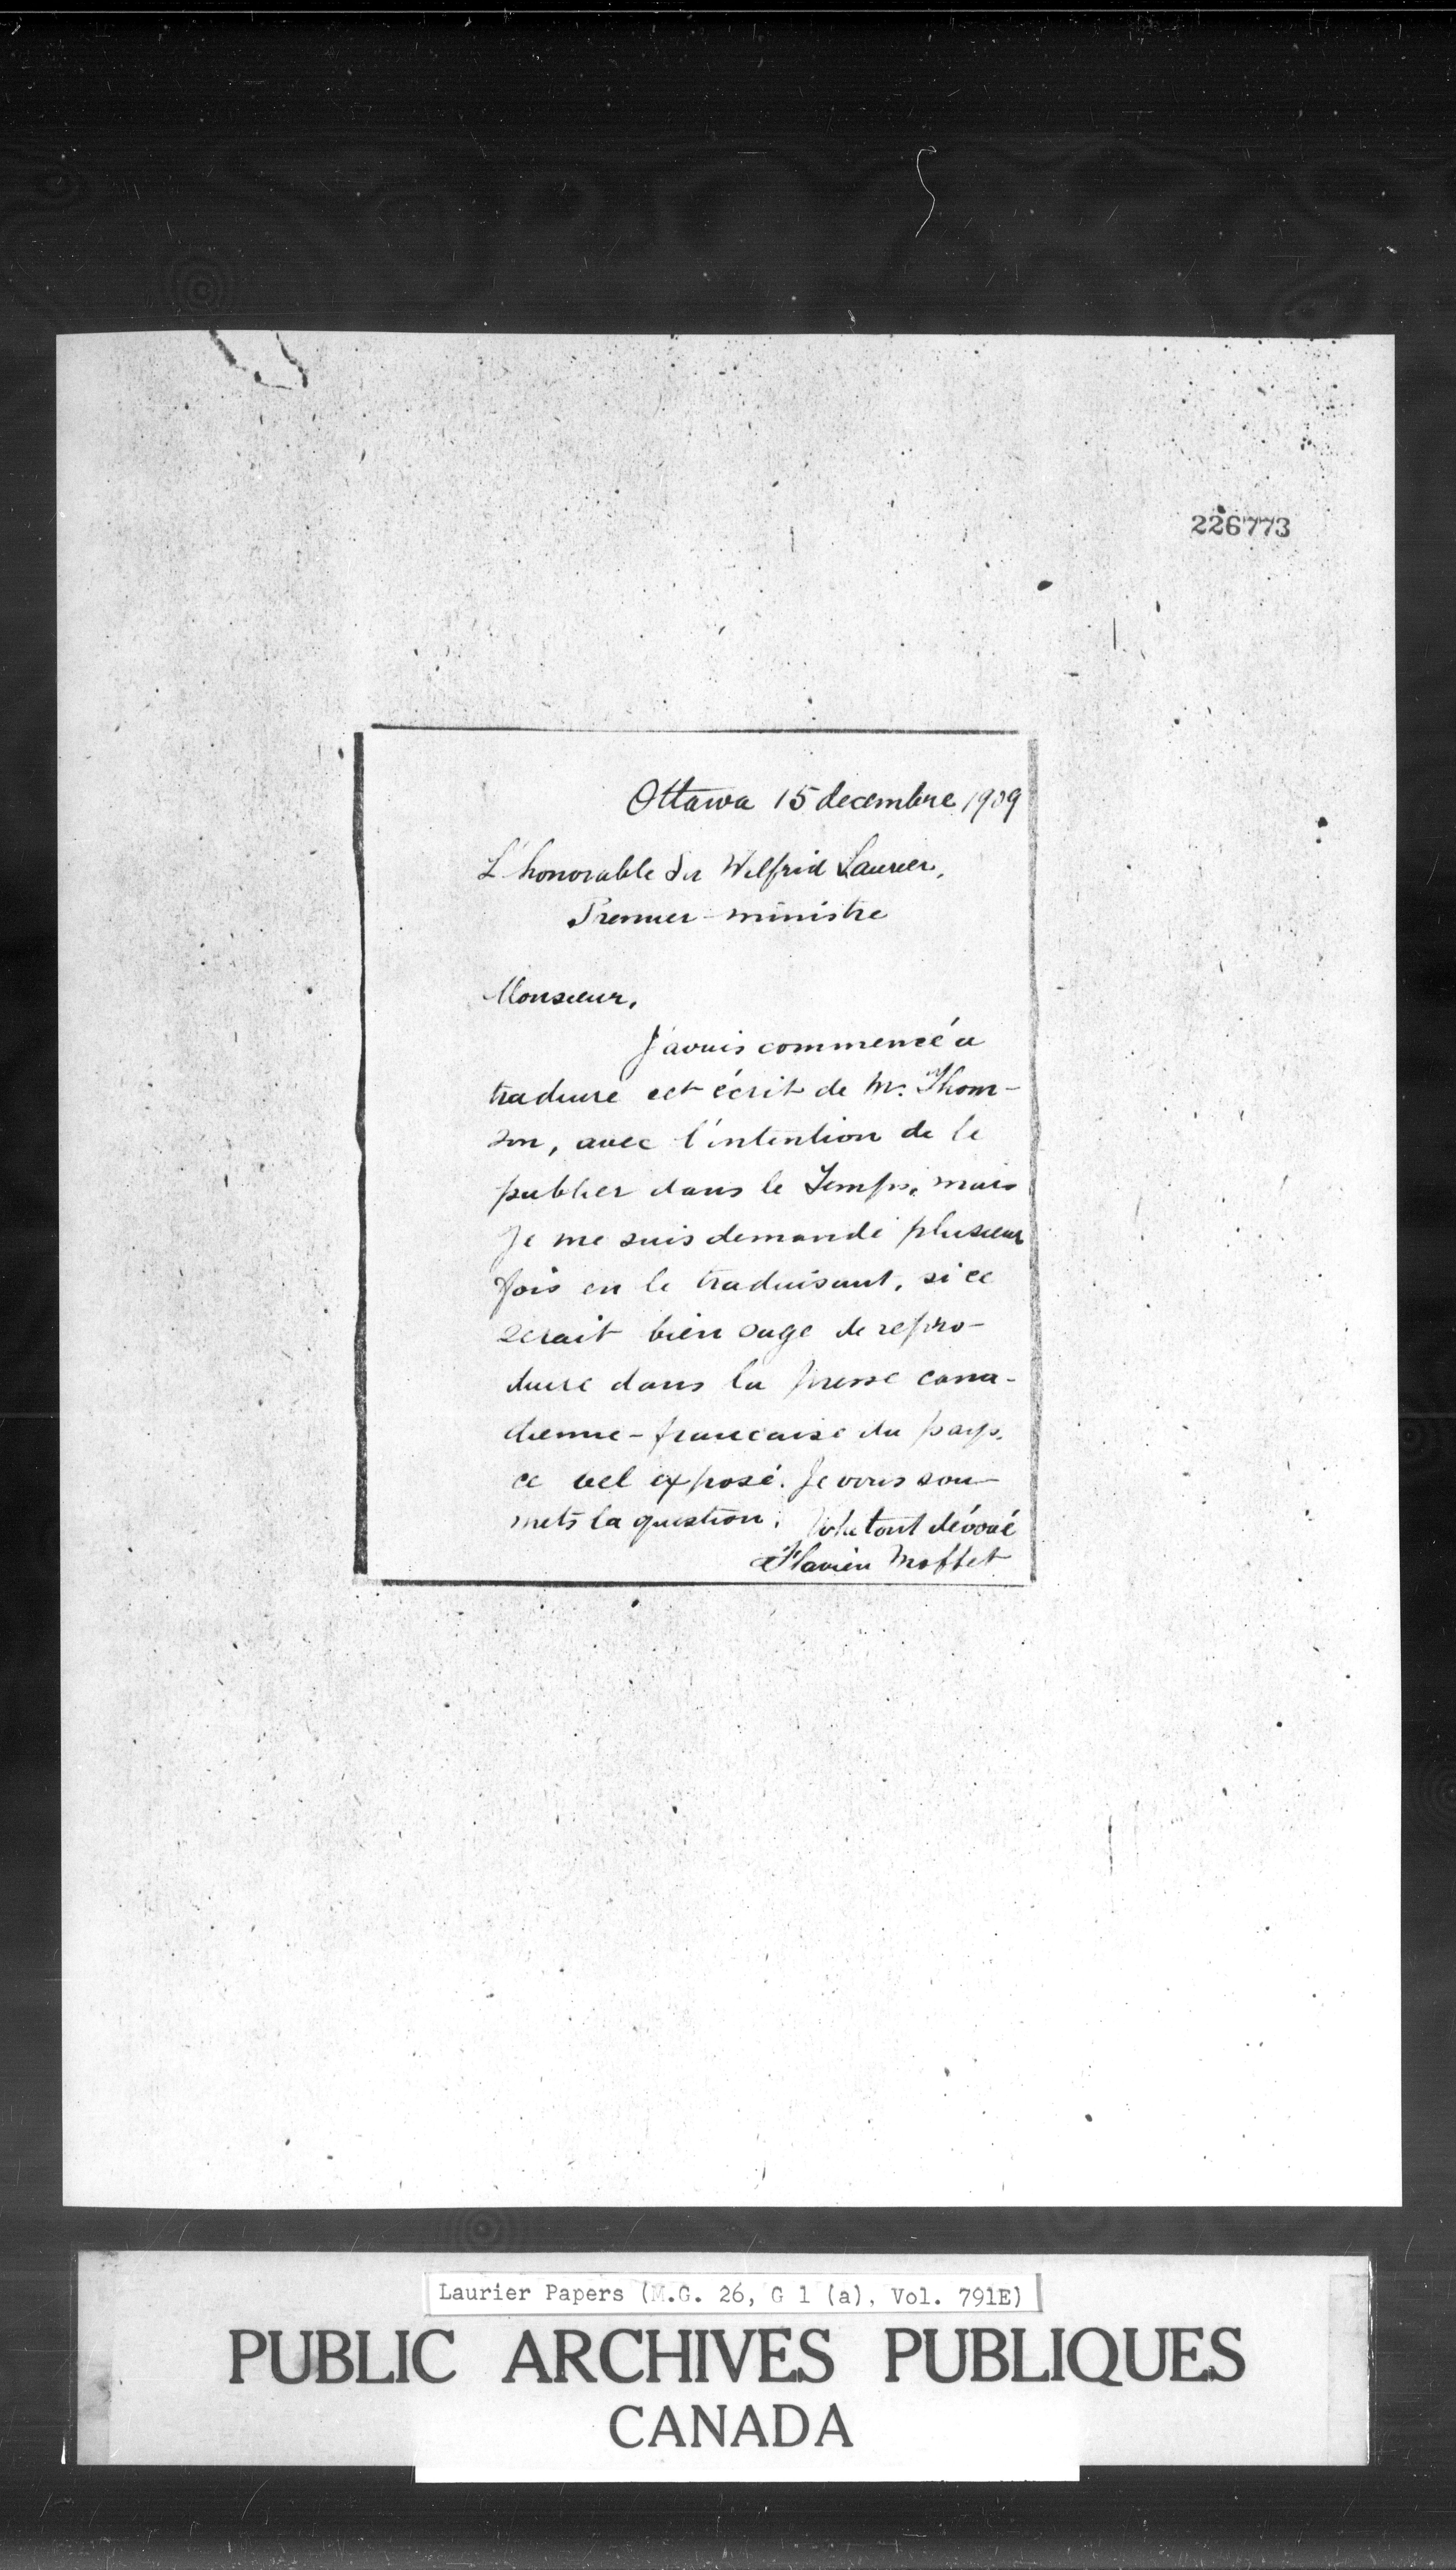 226773
Ottawa 15 decembre 1909
L'honorable Sir Wilfrid Laurier,
Premier-ministre
Monsieur,
J'avais commencé a
traduire cet écrit de Mr. Thom-
son, avec l'intention de le
publier dans le Temps, mais
je me suis demandé plusieur
fois en le traduisant, si ce
serait bien sage de repro-
duire dans la presse cana-
dienne-francaise du pays,
ce bel exposé. Je vous sou-
mets la question. Votre tout dévoué
Flavien Moffet
Laurier Papers (M.G. 26, G 1 (a), Vol. 791E)
PUBLIC ARCHIVES PUBLIQUES
CANADA